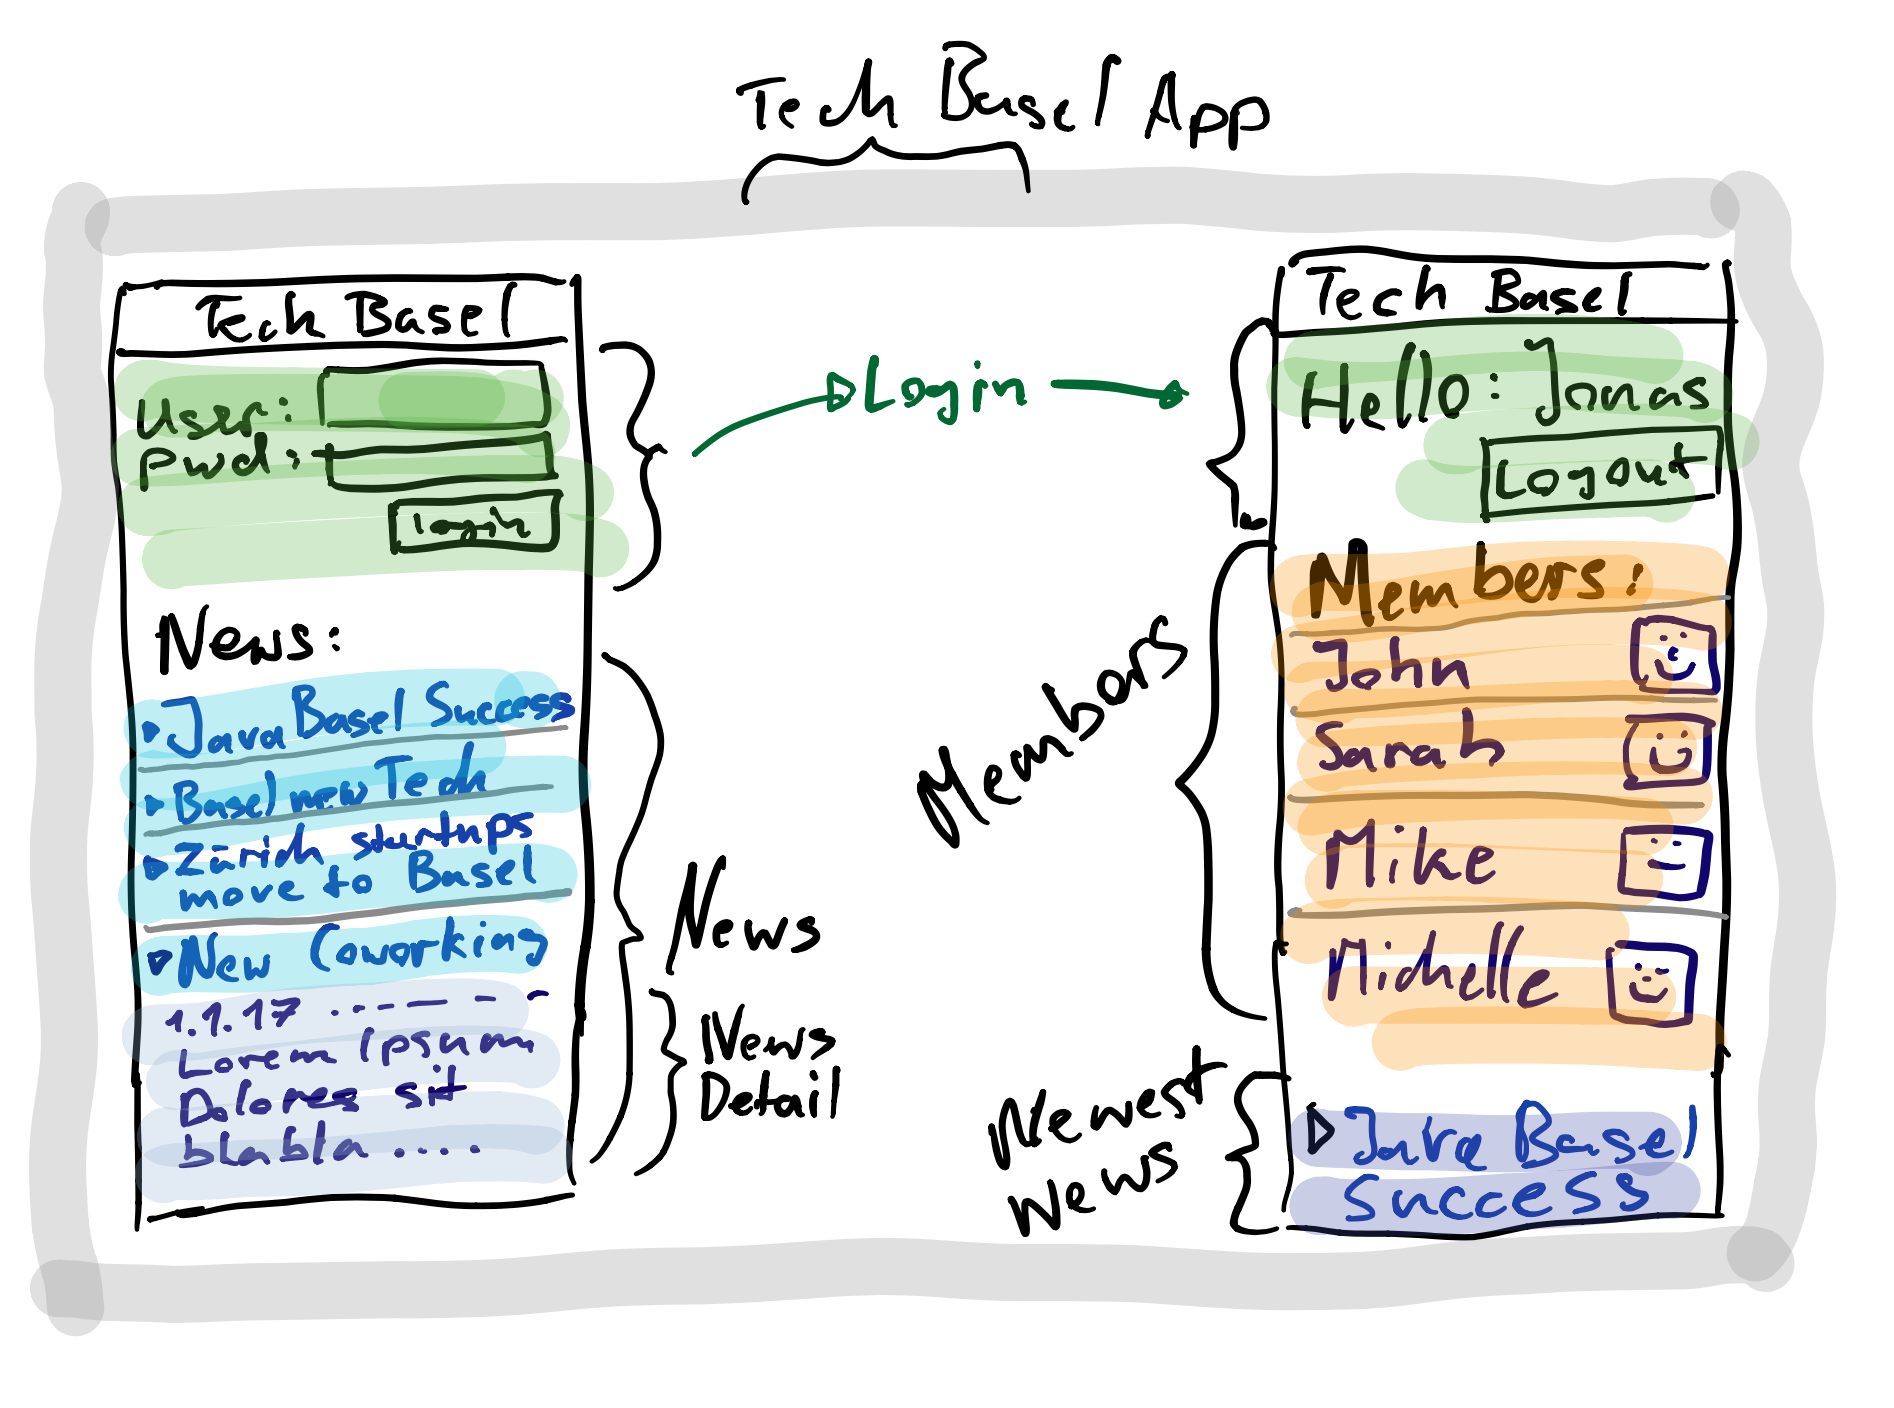 Tech Basel App
Tech Basel
User:
Pwd:
Login
News:
Java Basel Success
Basel new Tech
Zürich startups
move to Basel
New Coworking
1.1.17 ..... — — - -
Lorem Ipsum
Dolores sit
blabla .....
Login
News
News
Detail
Members
Newest
News
Tech Basel
Hello: Jonas
Logout
Members:
John
Sarah
Mike
Michelle
Java Basel
Success